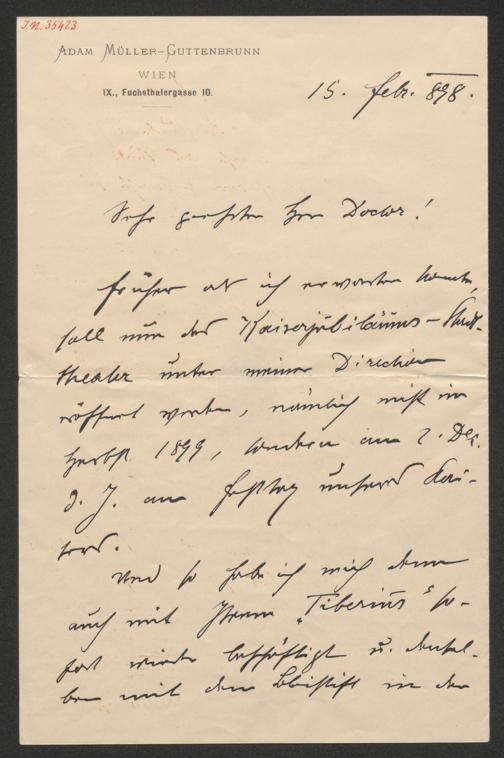 I.N. 35423
ADAM MÜLLER-GUTTENBRUNN
WIEN
IX., Fuchsthalergasse 10.
15. Febr. 898.
Sehr geehrter Herr Doctor!
Früher als ich erwarten konnte,
soll nun das Kaiserjubiläums-Stadt-
theater unter meiner Direction
eröffnet werden, nämlich nicht im
Herbst 1899, sondern am 2. Dez.
d. J. am Festtag unseres Kai-
sers.
Und so habe ich mich denn
auch mit Ihrem „Tiberius“ so-
fort wieder beschäftigt u. densel-
ben mit dem Bleistift in der